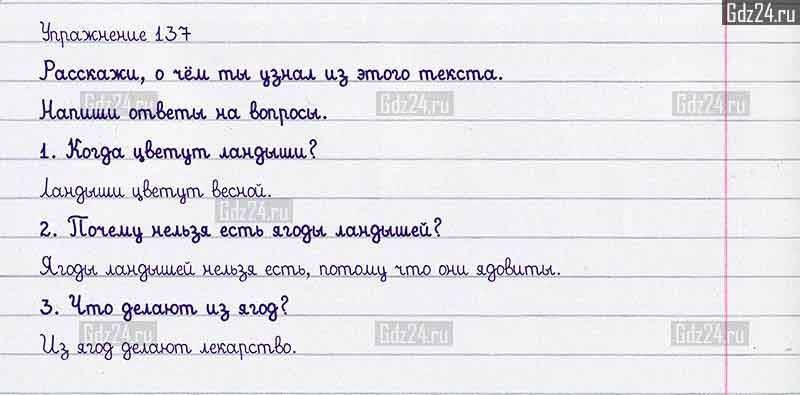 Gdz24.ru
Упражнение 137
Расскажи, о чём ты узнал из этого текста.
Gdz24.ru Gdz24.ru Gdz24.ru
Напиши ответы на вопросы.
1. Когда цветут ландыши?
Ландыши цветут весной.
Gdz24.ru
2. Почему нельзя есть ягоды ландышей?
Ягоды ландышей нельзя есть, потому что они ядовиты.
3. Что делают из ягод?
Gdz24.ru Gdz24.ru Gdz24.ru
Из ягод делают лекарство.